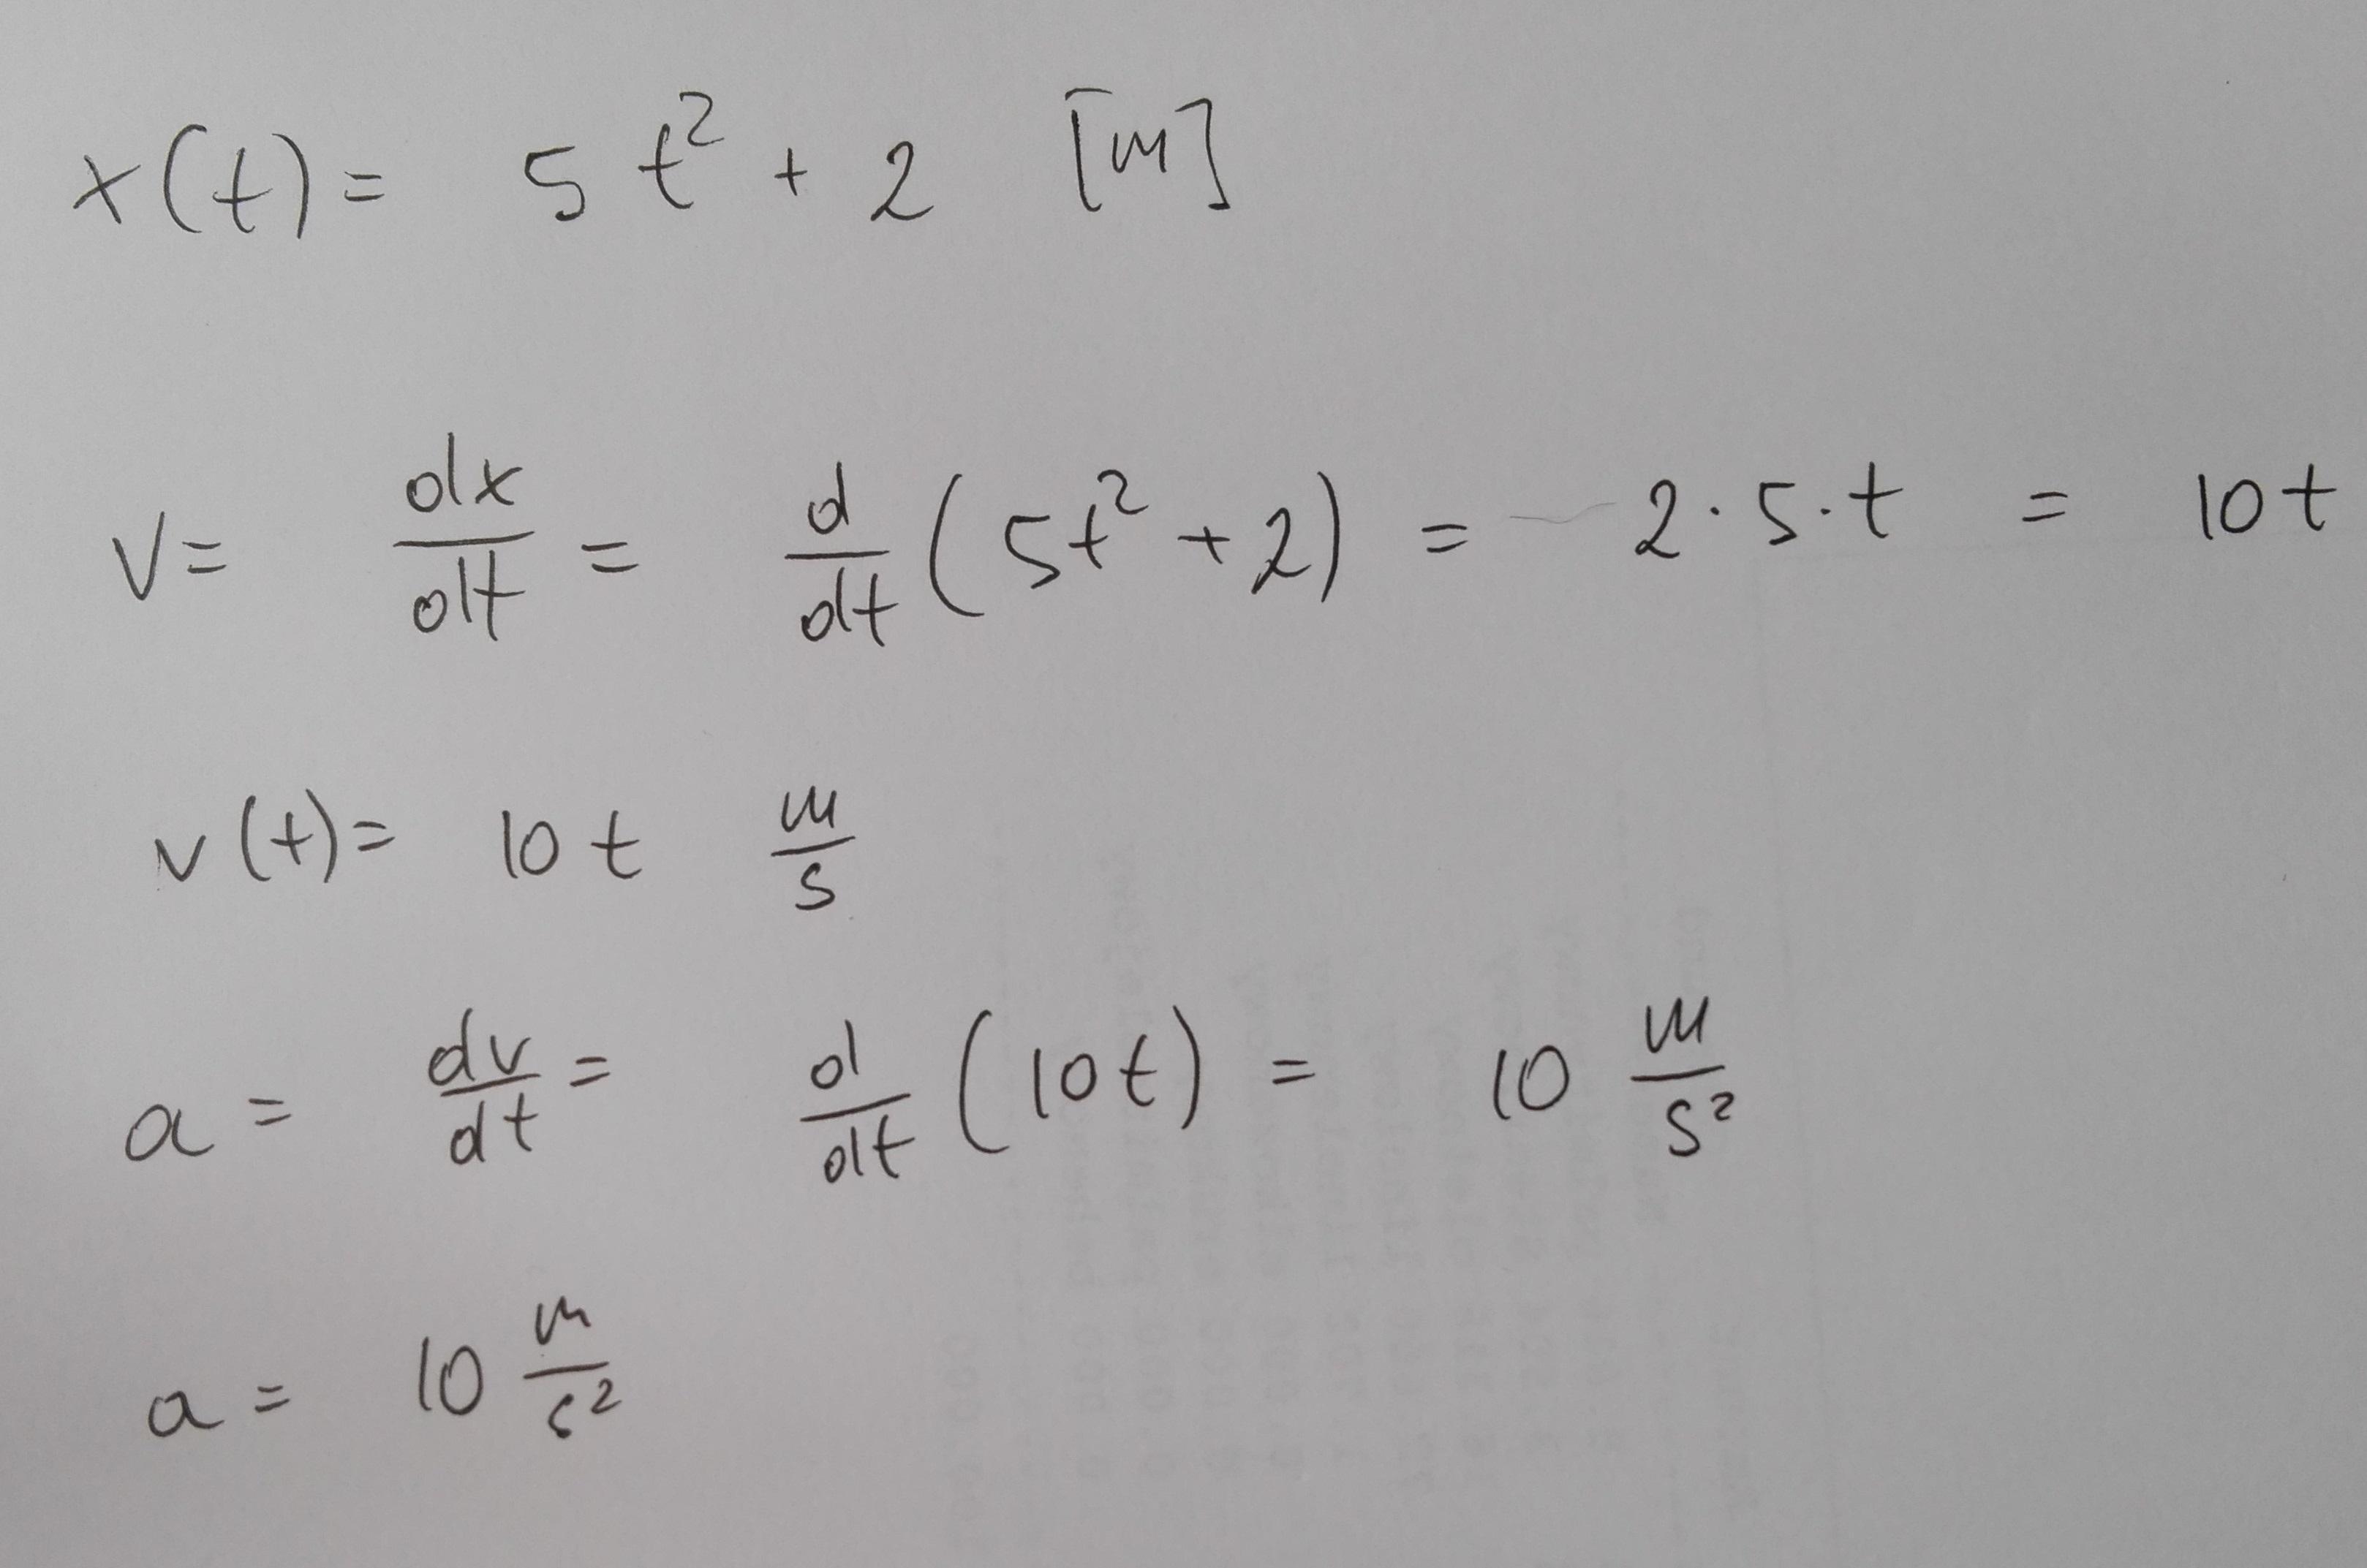 x(t) = 5t² + 2 [m]
v = dx/dt = d/dt (5t² + 2) = 2·5·t = 10t
v(t) = 10t m/s
a = dv/dt = d/dt (10t) = 10 m/s²
a = 10 m/s²